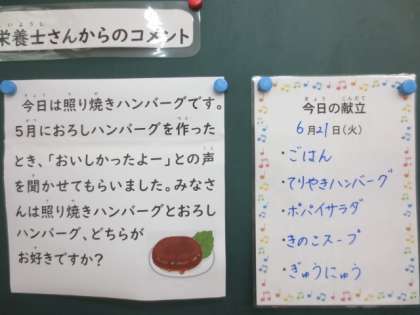 栄養士さんからのコメント
今日は照り焼きハンバーグです。
5月におろしハンバーグを作った
とき、「おいしかったよー」との声
を聞かせてもらいました。みなさ
んは照り焼きハンバーグとおろし
ハンバーグ、どちらが
お好きですか?
今日の献立
6月21日(火)
・ごはん
・てりやきハンバーグ
・ポパイサラダ
・きのこスープ
・ぎゅうにゅう